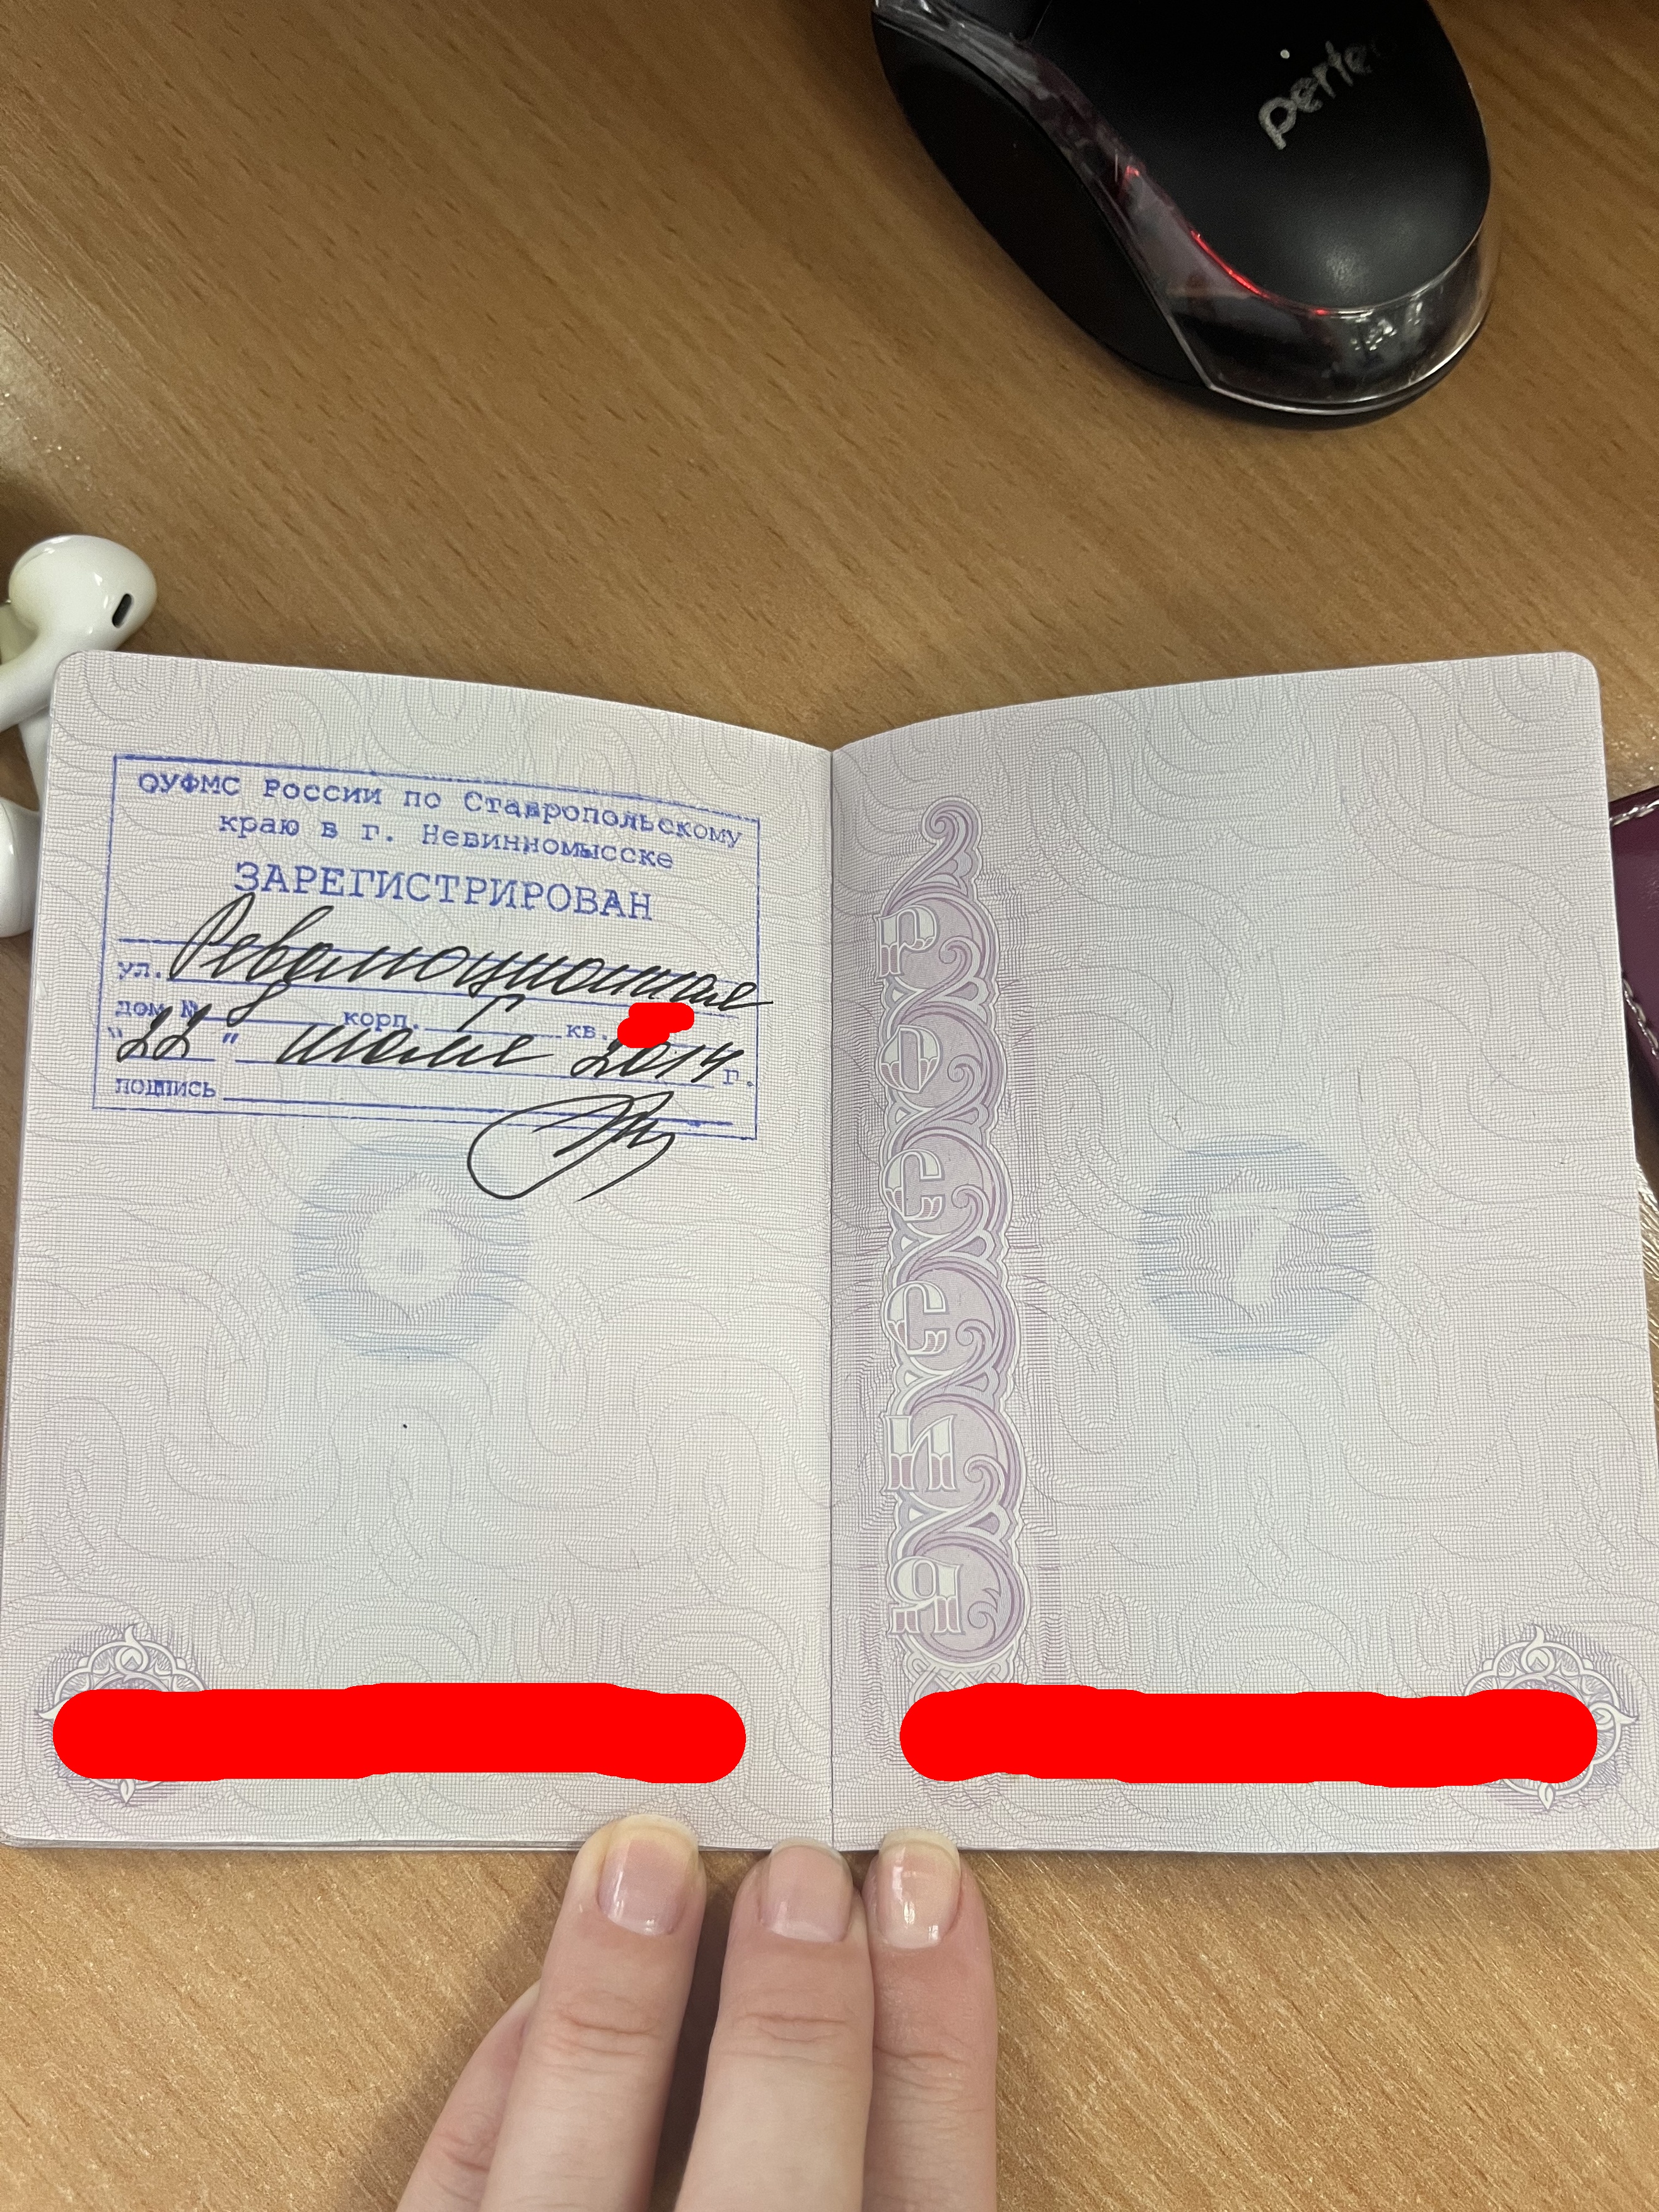 perfeo
ОУФМС России по Ставропольскому
краю в г. Невинномысске
ЗАРЕГИСТРИРОВАН
ул. Революционная
дом № 8 корп. Г кв.
"22" июля 2014 г.
подпись
РОССИЯ
6
7